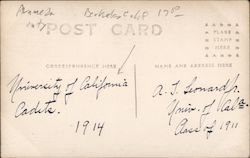 Berkeley Calif
POST CARD
PLACE
STAMP
HERE
CORRESPONDENCE HERE
NAME AND ADDRESS HERE
University of California
Cadets.
1914
A. T. Leonard Jr.
Univ. of Cal.
Class of 1911